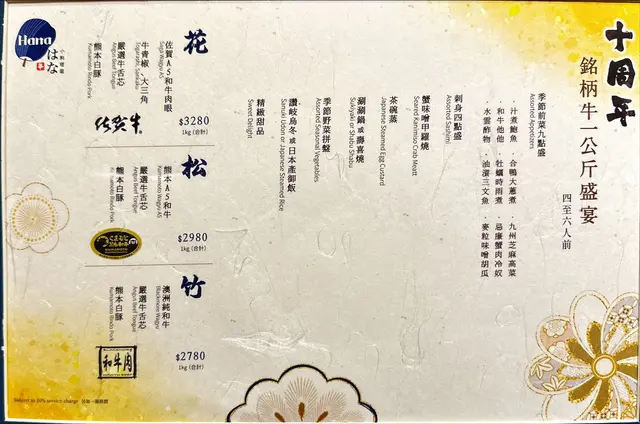 十周年
銘柄牛一公斤盛宴
四至六人前
季節前菜九點盛
Assorted Appetizers
· 汁煮鮑魚 · 合鴨大蔥煮 · 九州芝麻高菜
· 和牛他他 · 牡蠣時雨煮 · 忌廉蟹肉冷奴
· 水雲酢物 · 油漬三文魚 · 麥粒味噌胡瓜
刺身四點盛
Assorted Sashimi
蟹味噌甲羅燒
Seared Kanimiso Crab Meat
茶碗蒸
Japanese Steamed Egg Custard
涮涮鍋或壽喜燒
Sukiyaki or Shabu Shabu
季節野菜拼盤
Assorted Seasonal Vegetables
讚岐烏冬或日本產御飯
Sanuki Udon or Japanese Steamed Rice
精緻甜品
Sweet Delight
花
$3280
1kg (合計)
佐賀A5和牛肉眼
Saga Wagyu A5
牛青椒、大三角
Togarashi, Sankaku
嚴選牛舌芯
Angus Beef Tongue
熊本白豚
Kumamoto Rindo Pork
佐賀牛
松
$2980
1kg (合計)
熊本A5和牛
Kumamoto Wagyu A5
嚴選牛舌芯
Angus Beef Tongue
熊本白豚
Kumamoto Rindo Pork
竹
$2780
1kg (合計)
澳洲純和牛
Blackmore Wagyu
嚴選牛舌芯
Angus Beef Tongue
熊本白豚
Kumamoto Rindo Pork
和牛肉
Hana
はな
小料理屋
Subject to 10% service charge 另加一服務費